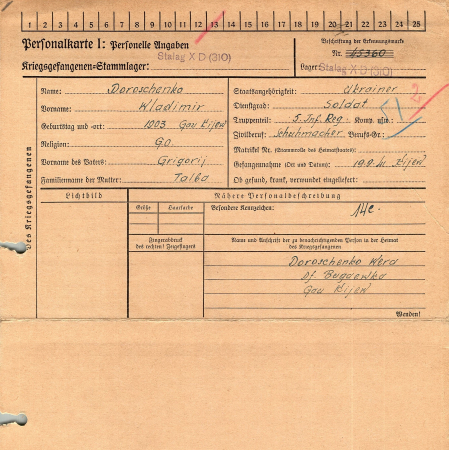 1 2 3 4 5 6 7 8 9 10 11 12 13 14 15 16 17 18 19 20 21 22 23 24 25
Personalkarte I: Personelle Angaben
Beschriftung der Erkennungsmarke
Stalag X D (310)
Nr. 45360
Kriegsgefangenen-Stammlager:
Lager: Stalag X D (310)
des Kriegsgefangenen
Name: Doroschenko
Staatsangehörigkeit: Ukrainer
Vorname: Wladimir
Dienstgrad: Soldat
Geburtstag und -ort: 1003 Gau Kijew
Truppenteil: 5. Inf. Reg. Komp. usw.:
Religion: G.O.
Zivilberuf: Schuhmacher Berufs-Gr.:
Matrikel Nr. (Stammrolle des Heimatstaates):
Vorname des Vaters: Grigorij
Gefangennahme (Ort und Datum): 19.9.41. Kijew
Familienname der Mutter: Talba
Ob gesund, krank, verwundet eingeliefert:
Lichtbild
Nähere Personalbeschreibung
Größe
Haarfarbe
Besondere Kennzeichen:
Fingerabdruck
des rechten! Zeigefingers
Name und Anschrift der zu benachrichtigenden Person in der Heimat
des Kriegsgefangenen
Doroschenko Wera
Df. Bugaewka
Gau Kijew
Wenden!